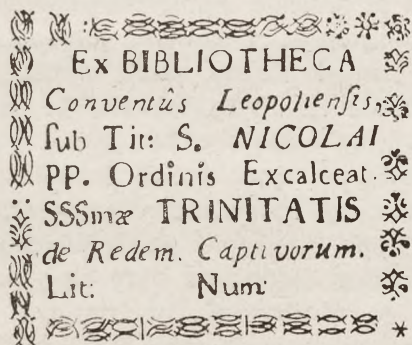 Ex BIBLIOTHECA
Conventûs Leopolienſis,
ſub Tit: S. NICOLAI
PP. Ordinis Excalceat.
SSSmæ TRINITATIS
de Redem. Captivorum.
Lit: Num: